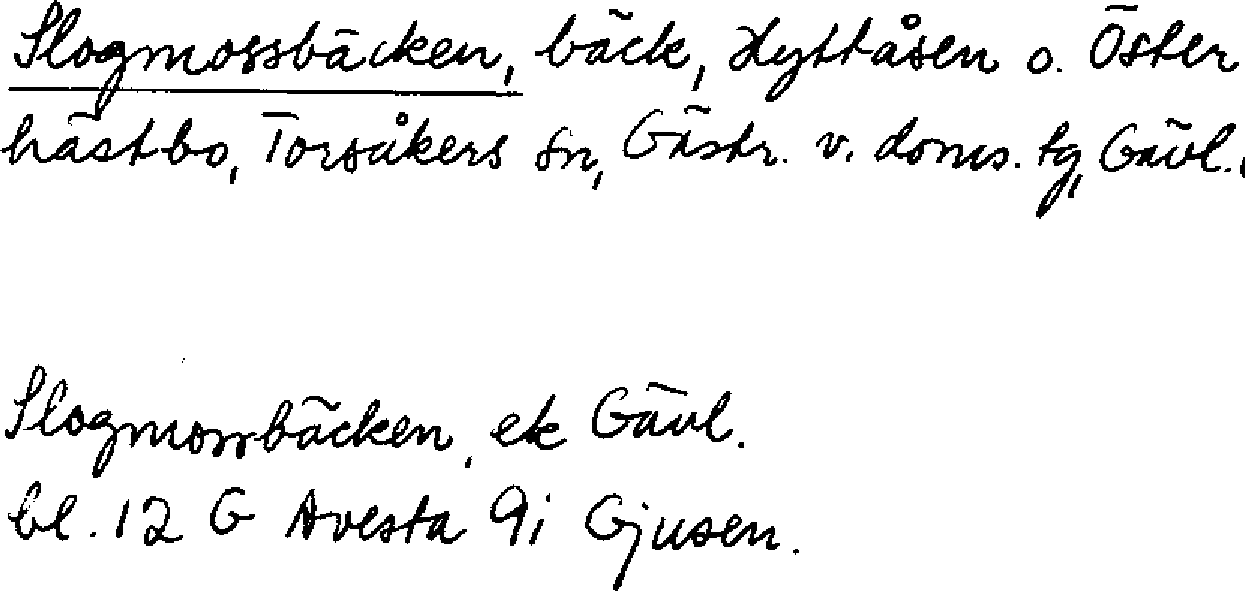 Slogmossbäcken, bäck, Hyttåsen o. Öster
hästbo, Torsåkers sn, Gästr. v. doms. tg, Gävl.,
Slogmossbäcken, ek Gävl.
bl. 12 G Avesta 9i Gjusen.